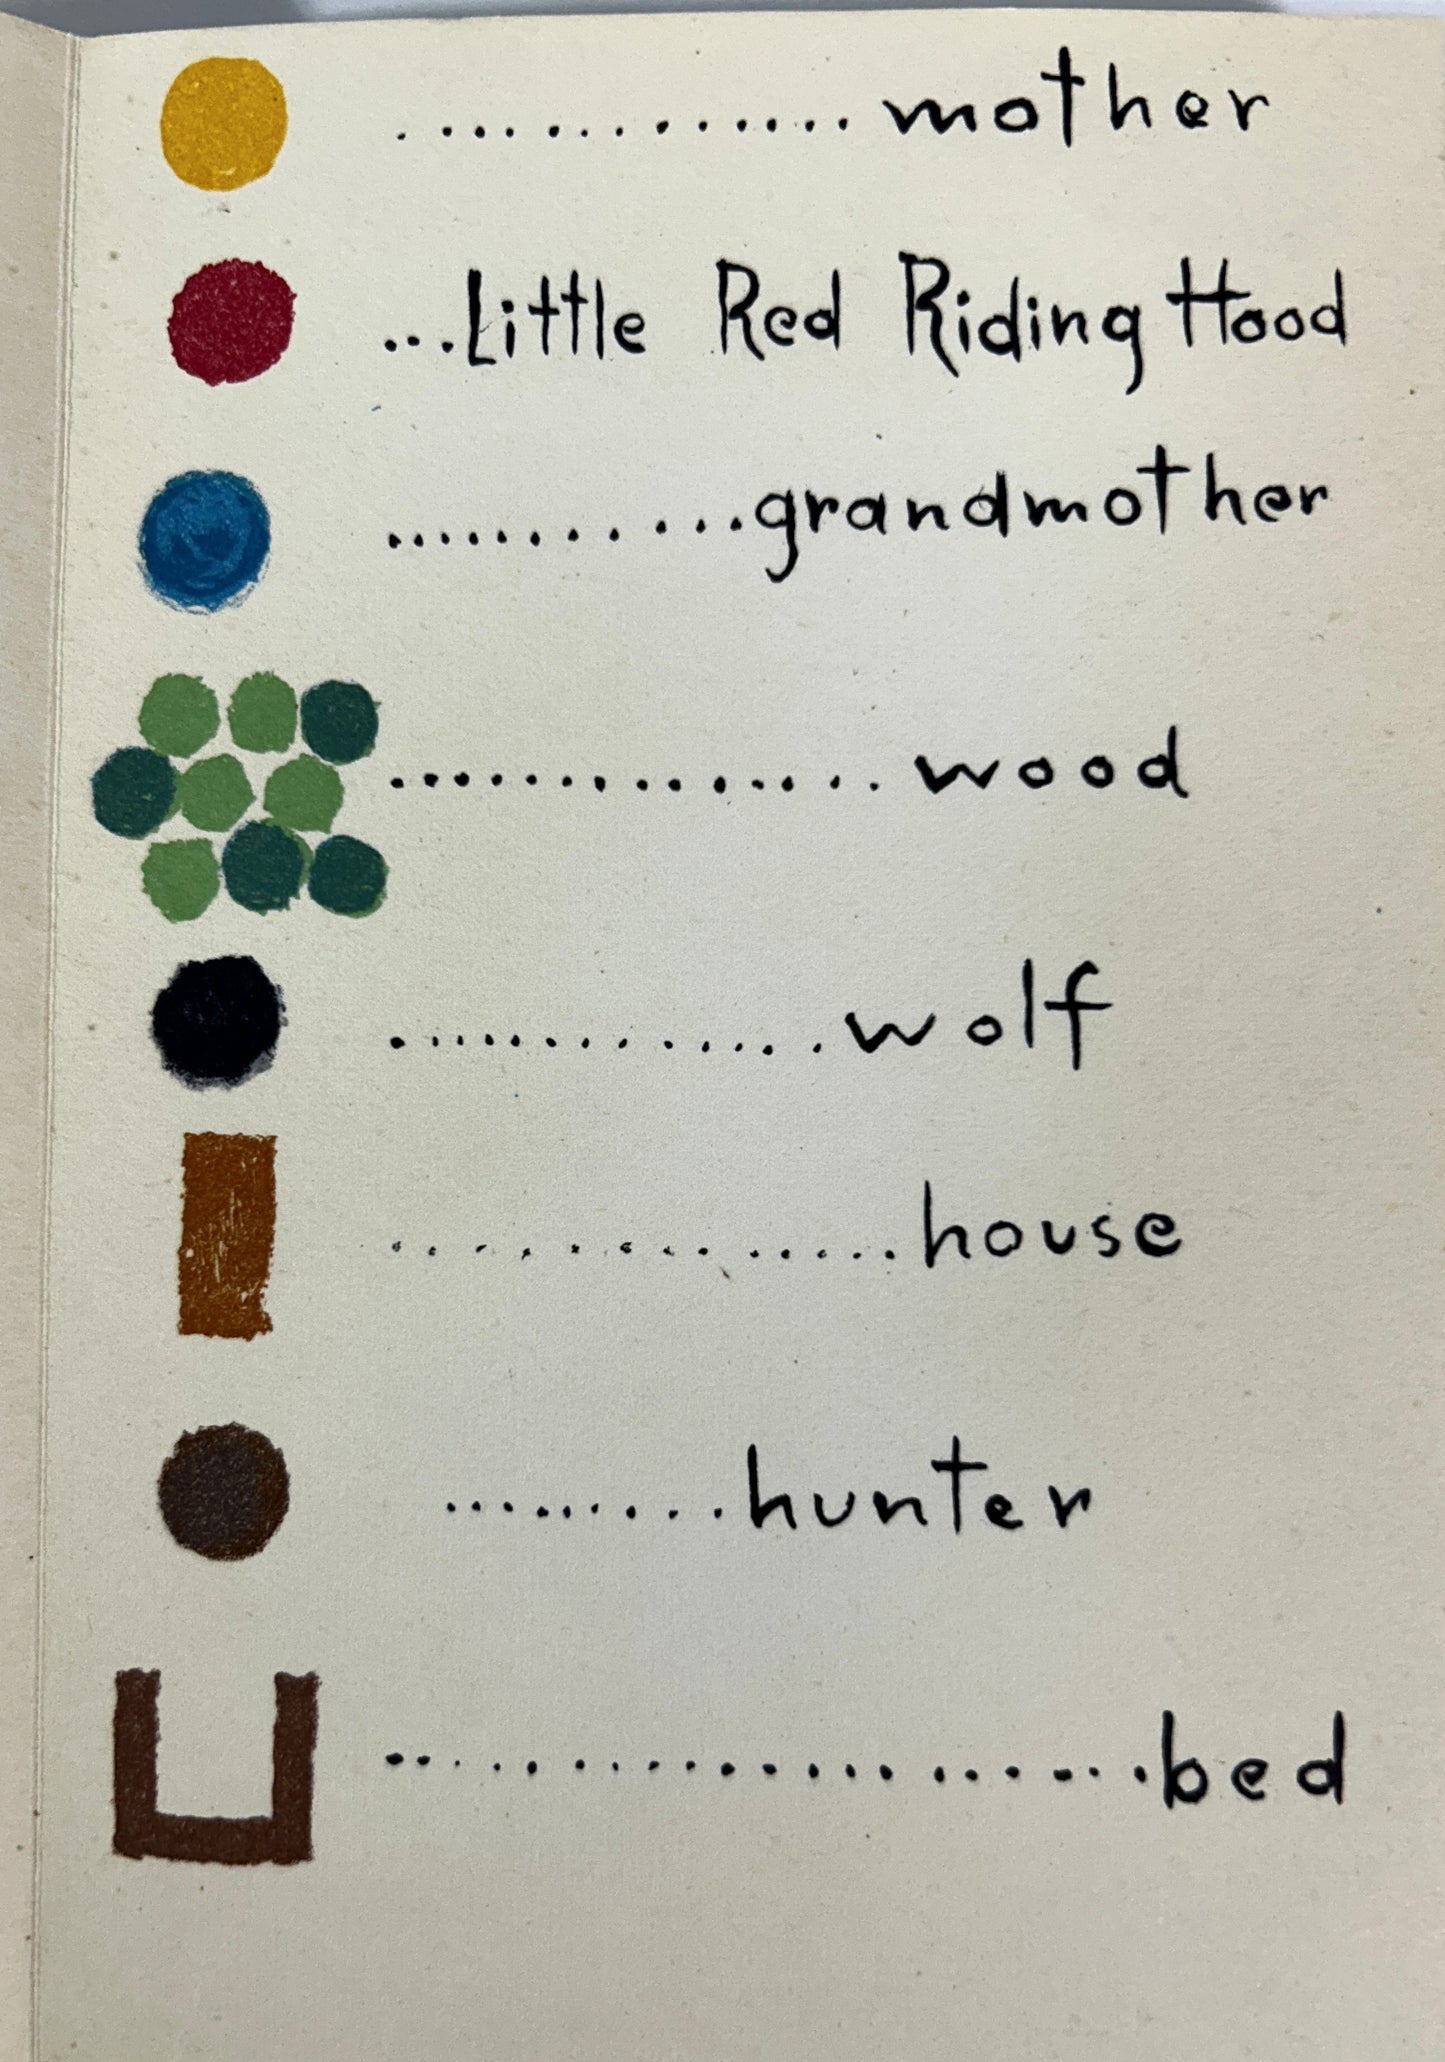 mother
Little Red Riding Hood
grandmother
wood
wolf
house
hunter
bed